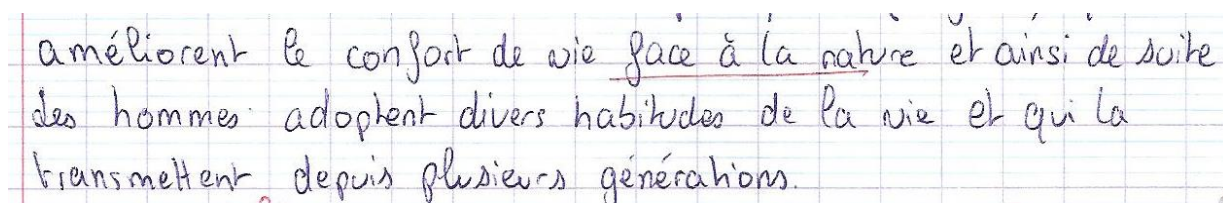 améliorent le confort de vie face à la nature et ainsi de suite
des hommes adoptent divers habitudes de la vie et qui la
transmettent depuis plusieurs générations.